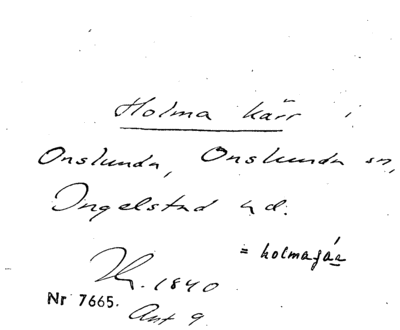 Holma kärr i
Onslunda, Onslunda sn,
Ingelstad hd.
= holmajár
1840
Nr 7665. Ant 9